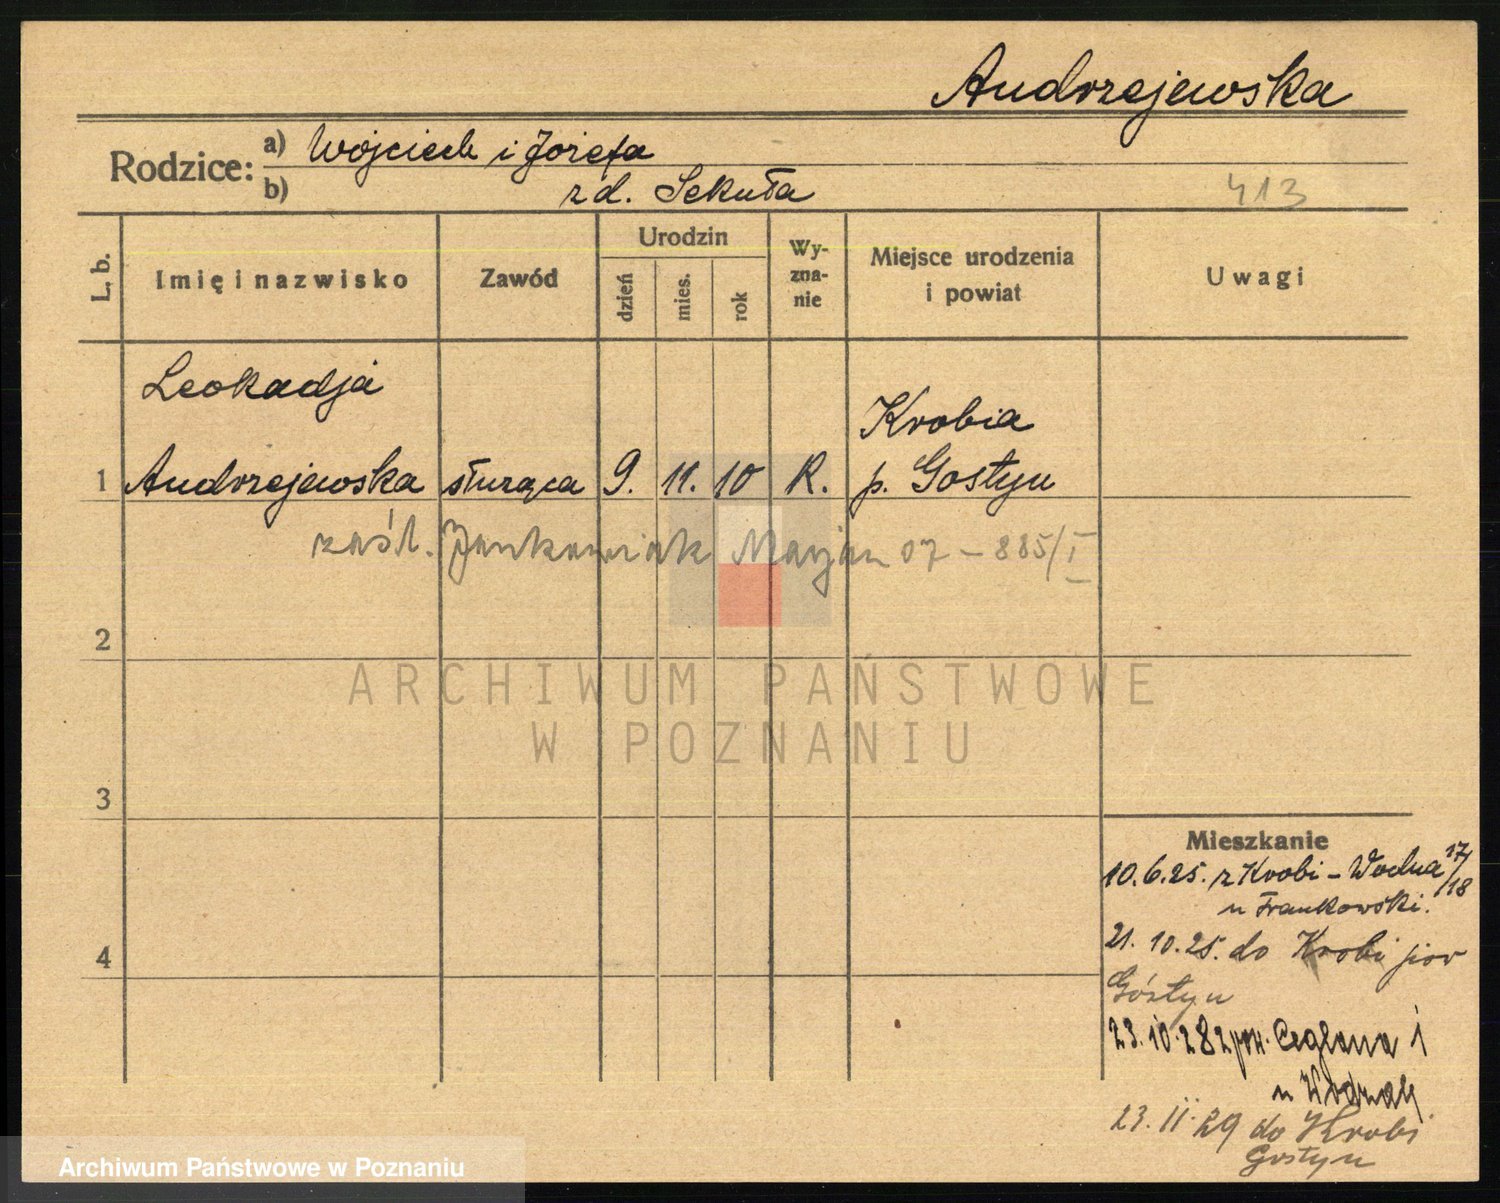 Andrzejewska
Rodzice:
a) Wojciech i Józefa
b) zd. Sekuła
413
L. b.
Imię i nazwisko
Zawód
Urodzin
dzień
mies.
rok
Wy-
zna-
nie
Miejsce urodzenia
i powiat
Uwagi
Leokadja
Krobia
1 Andrzejewska służąca 9. 11. 10 R. p. Gostyn
zaśl. Jankowiak Marjan 07 – 885/I
2
ARCHIWUM PAŃSTWOWE
W POZNANIU
3
4
Mieszkanie
10.6.25. z Krobi – Wodna 17/18
u Frankowski.
21.10.25. do Krobi
Gostyn
23.10.28 z pow. Ceglana 1
u
23.11.29 do Krobi
Gostyn
Archiwum Państwowe w Poznaniu